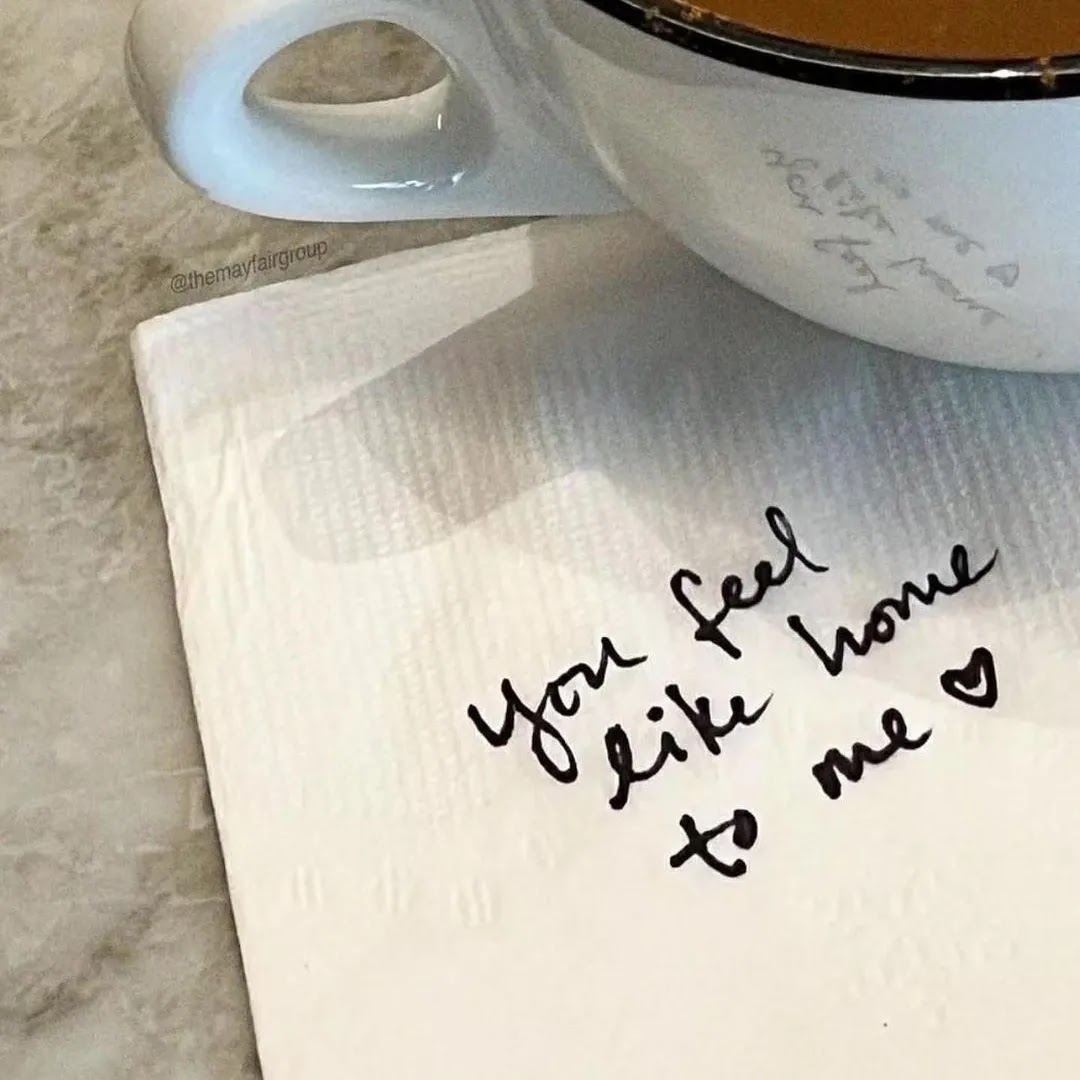 @themayfairgroup
you feel
like home
to me ♡